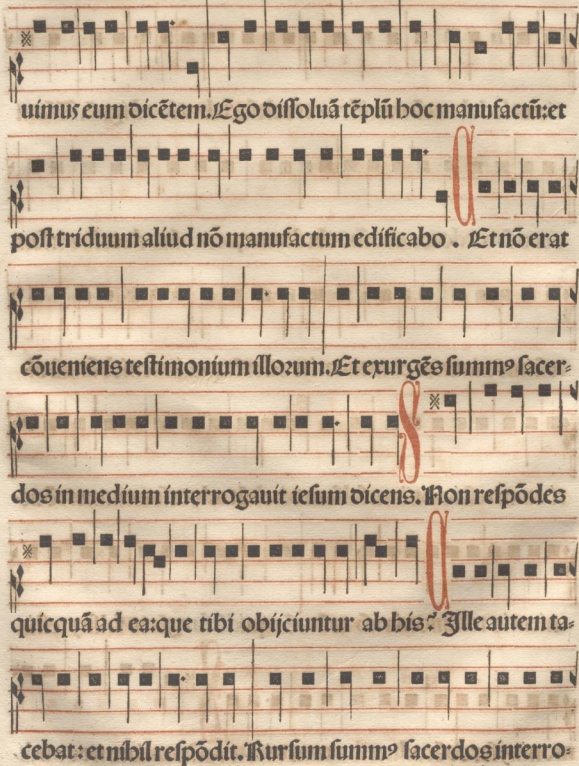 uimus eum dicētem. Ego dissoluā tēplū hoc manufactū: et
post triduum aliud nō manufactum edificabo. C Et nō erat
cōueniens testimonium illorum. Et exurgēs summꝰ sacer⸗
dos in medium interrogauit iesum dicens. S Non respōdes
quicquā ad ea: que tibi obijciuntur ab his? C Ille autem ta⸗
cebat: et nihil respōdit. Rursum summꝰ sacerdos interro⸗